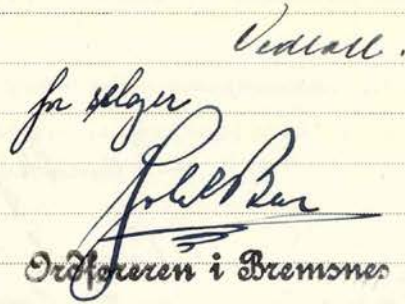 Vedtatt.
for selger
Ordføreren i Bremsnes